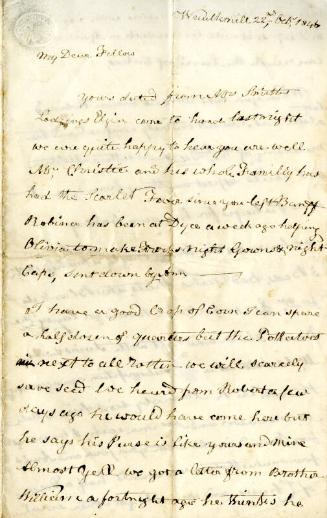 22nd Octr. 1846
My Dear Fellow
Yours dated from Mrs Smiths
Lodgings Elgin came to hand last night
we are quite happy to hear you are well
Mr Christie and his whole Familly has
had the Scarlet Fever since you left Banff
Robina has been at Dyce a week ago helping
Olivia to make night Gowns & night
Caps, sent down by Ann
I have a good Crop of Corn I can spare
a half dozen of quarters but the Pottertoes
next to all Rotten we will scarcely
save seed we heard from Robert a few
days ago he would have come here but
he says his Purse is like yours and mine
Almost Yell we got a later from Brother
William a fortnight ago he thinks he